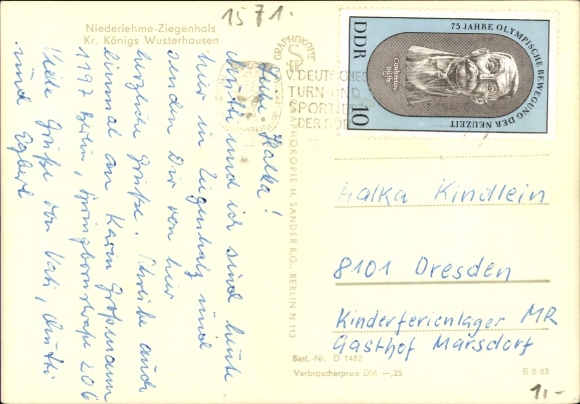 1571.
Niederlehme-Ziegenhals
Kr. Königs Wusterhausen
Halka!
und ich sind heute
hier in Ziegenhals und
senden Dir von hier
herzliche Grüße. Schreibe auch
einmal an Karin Großmann
1197 Berlin, Springbornstraße 206
Viele Grüße von Vati, Mutti
und Egbert
GRAPHOKOPIE
GRAPHOKOPIE H. SANDER K.G., BERLIN N 113
V. DEUTSCHES
TURN- UND
SPORTFEST
DER DDR
75 JAHRE OLYMPISCHE BEWEGUNG DER NEUZEIT
DDR
Coubertin-
büste
10
Halka Kindlein
8101 Dresden
Kinderferienlager MR
Gasthof Marsdorf
Best.-Nr. D 1482
Verbraucherpreis DM -,25
B 8/63
1,-